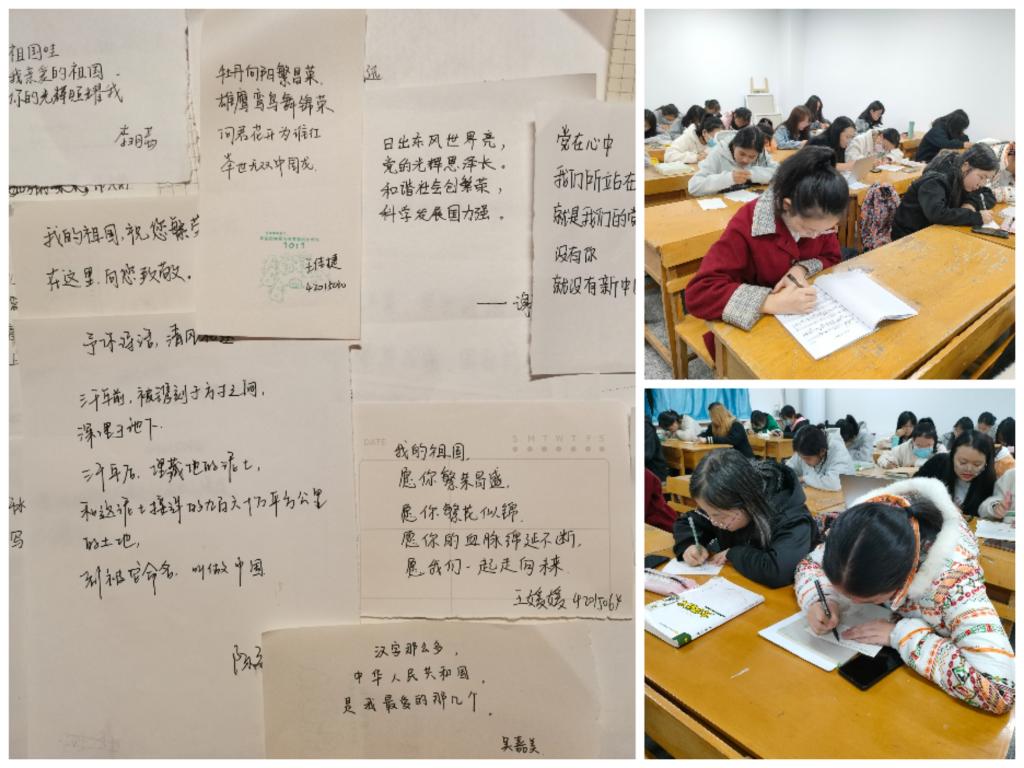 祖国哇
我亲爱的祖国
你的光辉照耀我
牡丹向阳繁昌荣
雄鹰鸾鸟舞锦荣
问君花开为谁红
举世无双中国龙
1011
王佳捷
42015040
远
日出东风世界亮,
党的光辉恩泽长。
和谐社会创繁荣,
科学发展国力强。
——谢
党在心中
我们所立的在
就是我们的党
没有你
就没有新中
我的祖国,祝您繁荣
在这里,向您致敬。
予你译语,清风
三千年前,被镌刻于方寸之间,
深埋于地下.
三千年后,埋藏地的泥土,
和这泥土接连的九百六十万平方公里
的土地,
到被它命名,叫做中国
DATE
S M T W T F S
我的祖国,
愿你繁荣昌盛,
愿你繁花似锦,
愿你的血脉绵延不断,
愿我们一起走向未来.
王媛媛 42015064
汉字那么多,
中华人民共和国,
是我最爱的那几个.
吴嘉美